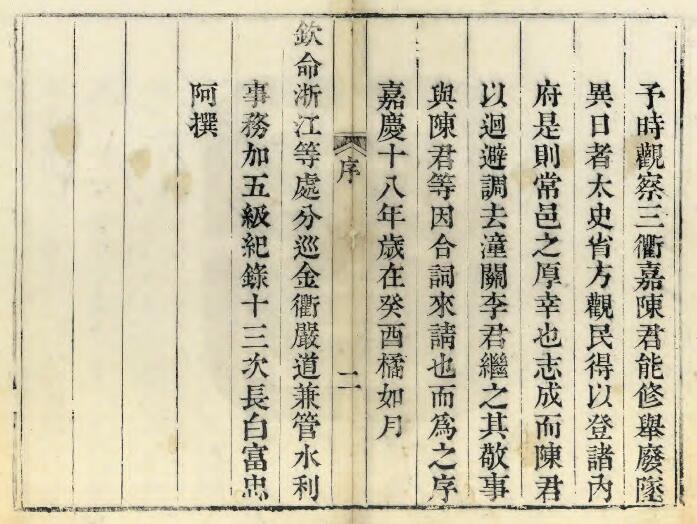 予時觀察三衢嘉陳君能修舉廢墜
異日者太史省方觀民得以登諸內
府是則常邑之厚幸也志成而陳君
以迴避調去潼關李君繼之其敬事
與陳君等因合詞來請也而為之序
嘉慶十八年歲在癸酉橘如月
序
二
欽命浙江等處分巡金衢嚴道兼管水利
事務加五級紀錄十三次長白富忠
阿撰